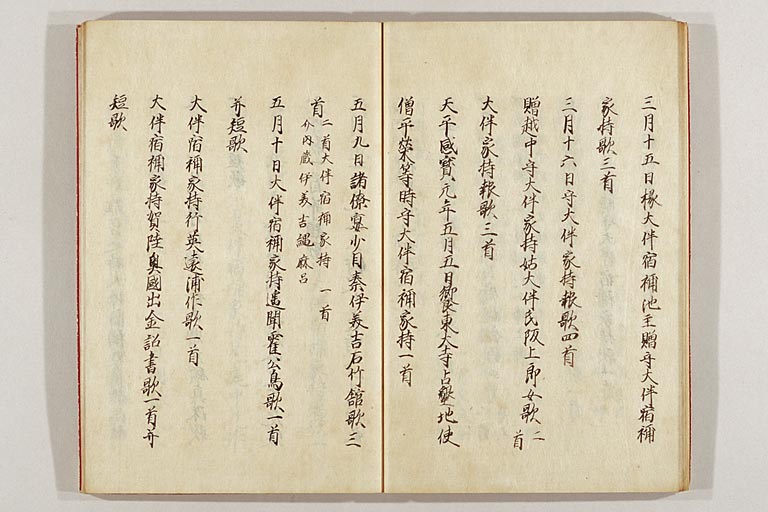 三月十五日掾大伴宿祢池主贈守大伴宿祢
家持歌三首
三月十六日守大伴家持報歌四首
贈越中守大伴家持姑大伴氏阪上郎女歌二首
大伴家持報歌三首
天平感寳元年五月五日饗東大寺占墾地使
僧平榮等時守大伴宿祢家持一首
五月九日諸僚宴少目秦伊美吉石竹舘歌三
首 二首大伴宿祢家持 一首
介内蔵伊美吉縄麻呂
五月十日大伴宿祢家持遥聞霍公鳥歌一首
并短歌
大伴宿祢家持行英遠浦作歌一首
大伴宿祢家持賀陸奥國出金詔書歌一首并
短歌